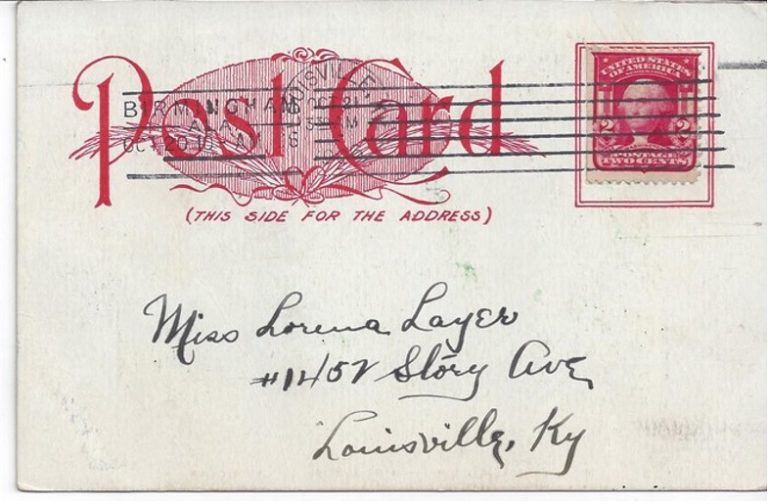 Post Card
UNITED STATES
OF AMERICA
BIRMINGHAM
LOUISVILLE
OCT 21
OCT 20
2 2
POSTAGE
TWO CENTS
(THIS SIDE FOR THE ADDRESS)
Miss Lorena Layer
#1457 Story Ave
Louisville, Ky